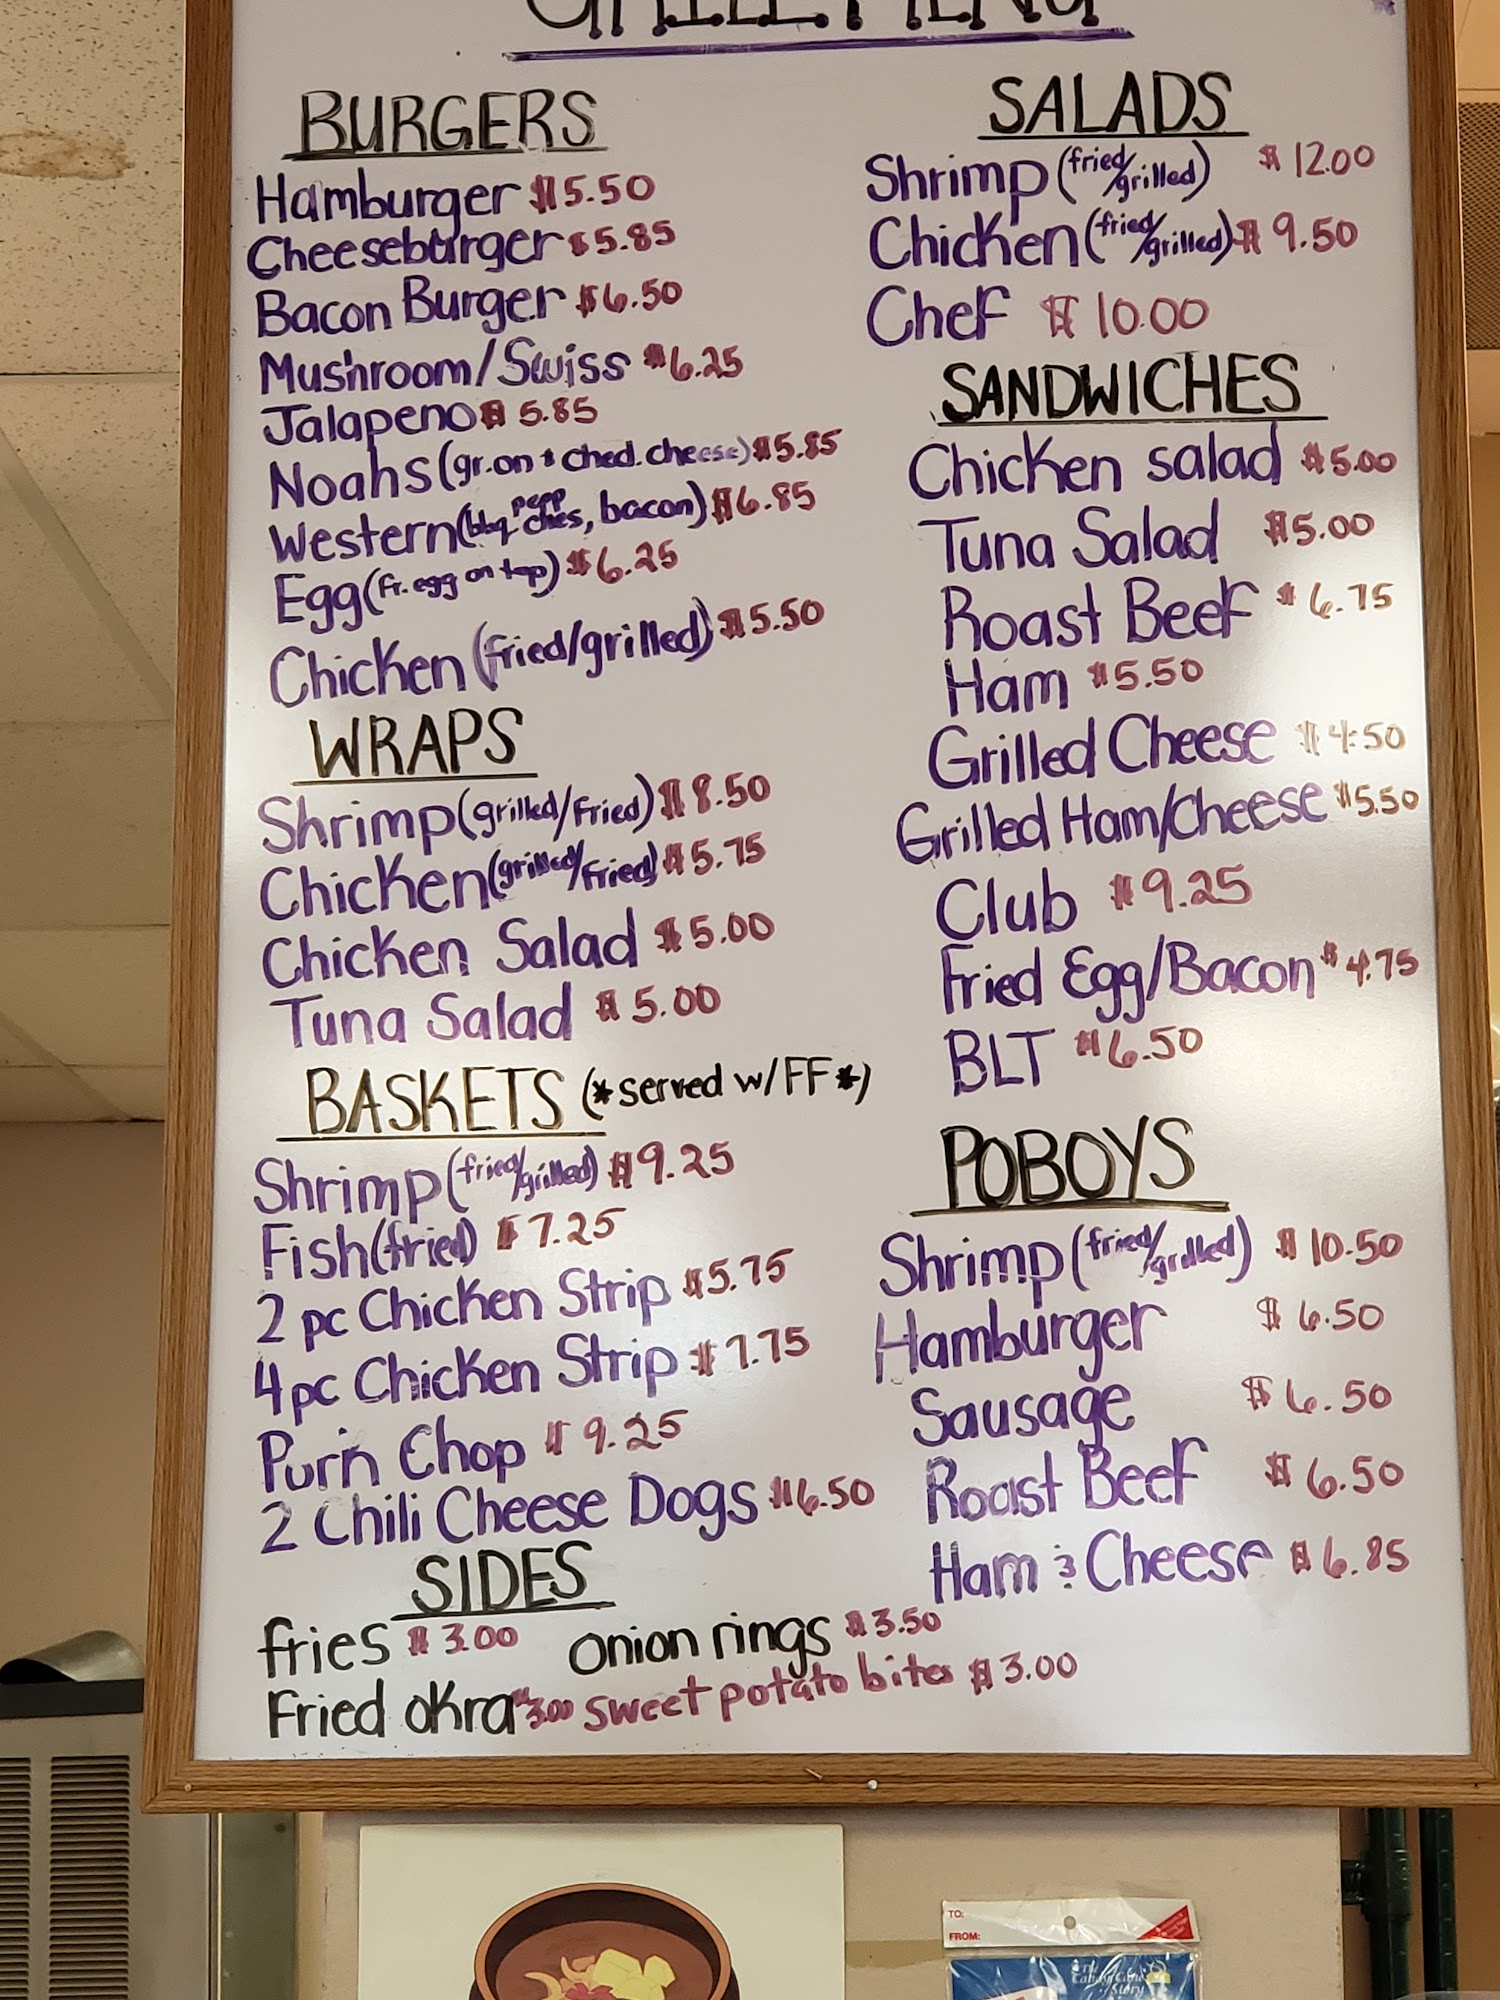 GRILL MENU
BURGERS
Hamburger $5.50
Cheeseburger $5.85
Bacon Burger $6.50
Mushroom/Swiss $6.25
Jalapeno $5.85
Noahs (gr.on & ched. cheese) $5.85
Western (bbq, pepp ches, bacon) $6.85
Egg (fr. egg on top) $6.25
Chicken (fried/grilled) $5.50
WRAPS
Shrimp (grilled/fried) $8.50
Chicken (grilled/fried) $5.75
Chicken Salad $5.00
Tuna Salad $5.00
BASKETS (*served w/FF*)
Shrimp (fried/grilled) $9.25
Fish (fried) $7.25
2 pc Chicken Strip $5.75
4 pc Chicken Strip $7.75
Chop $9.25
2 Chili Cheese Dogs $6.50
SIDES
fries $3.00 onion rings $3.50
Fried okra $3.00 sweet potato bites $3.00
SALADS
Shrimp (fried/grilled) $12.00
Chicken (fried/grilled) $9.50
Chef $10.00
SANDWICHES
Chicken salad $5.00
Tuna Salad $5.00
Roast Beef $6.75
Ham $5.50
Grilled Cheese $4.50
Grilled Ham/Cheese $5.50
Club $9.25
Fried Egg/Bacon $4.75
BLT $6.50
POBOYS
Shrimp (fried/grilled) $10.50
Hamburger $6.50
Sausage $6.50
Roast Beef $6.50
Ham & Cheese $6.85
TO:
FROM:
The
Candy Cane
Story